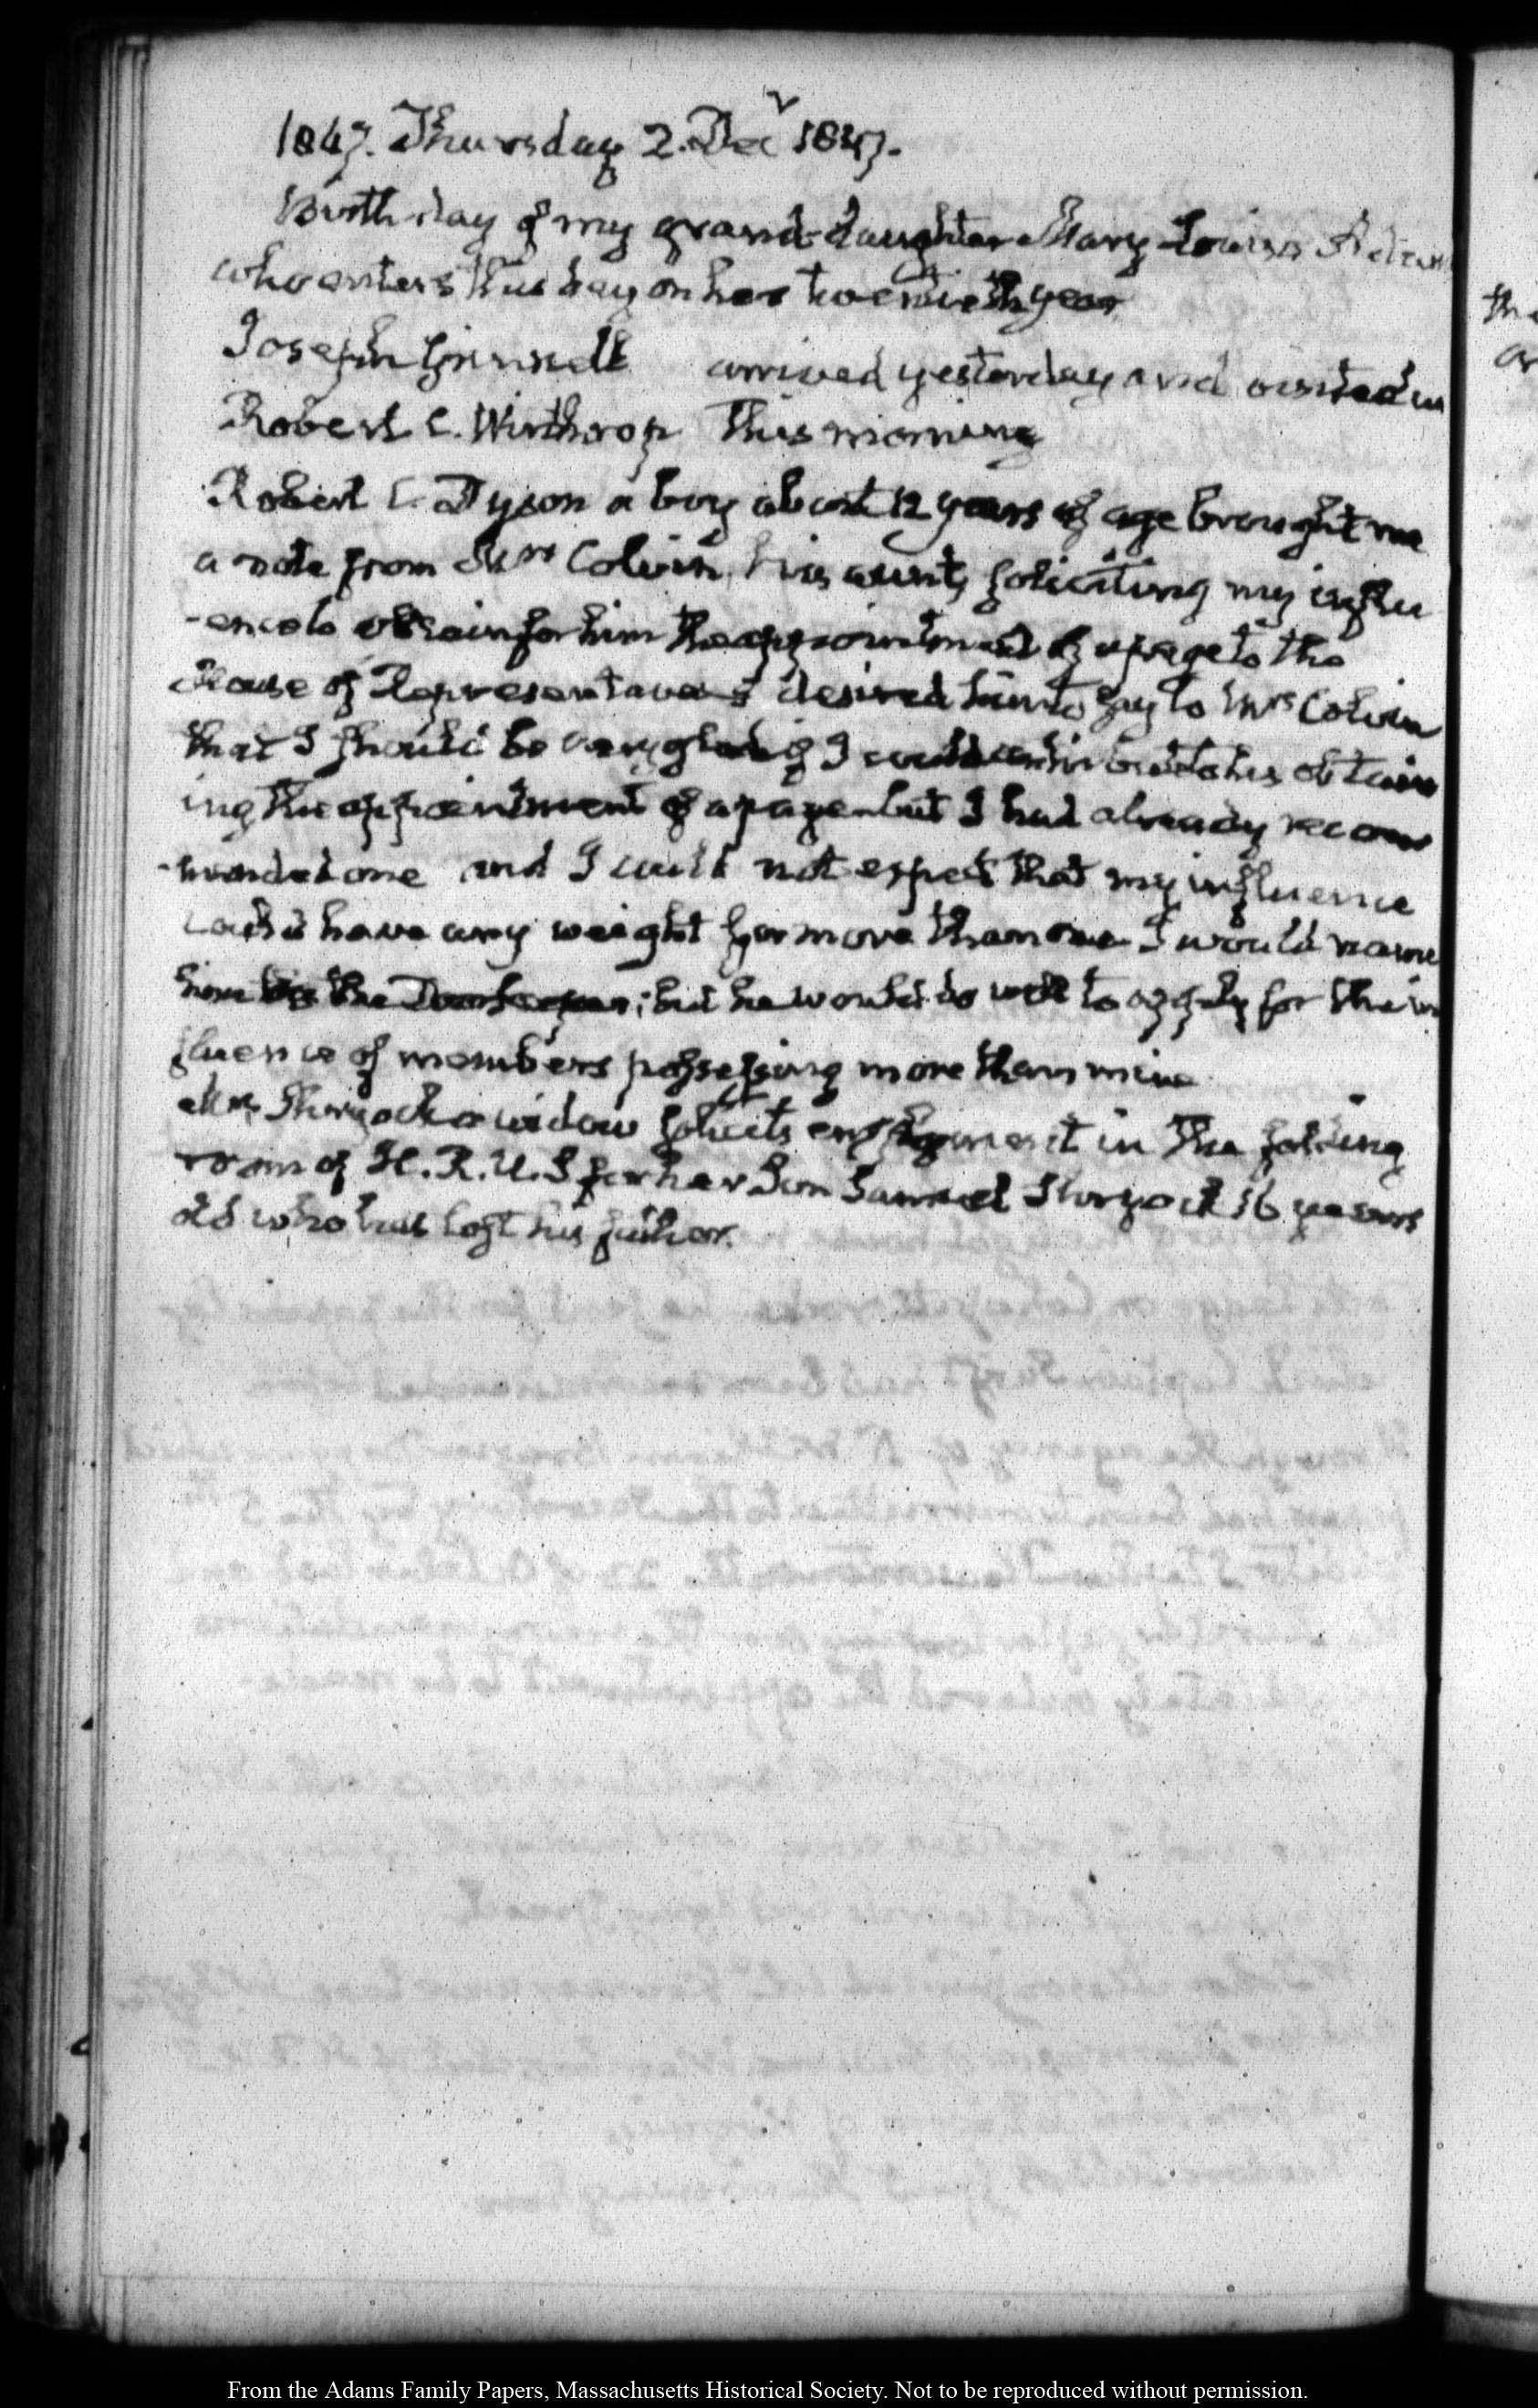 1847. Thursday 2. Decr 1847.
Birth day of my grand-daughter Mary Louisa Adams
who enters this day on her twentieth year
Joseph Grinnell arrived yesterday and visited us
Robert C. Winthrop This morning
Robert C. Dyson a boy about 12 years of age brought me
a note from Mrs Colvin, his aunt, soliciting my influ
-ence to obtain for him the appointment of a page to the
House of Representatives I desired him to say to Mrs Colvin
that I should be very glad if I could contribute to his obtain
ing the appointment of a page but I had already recom
-mended one and I could not expect that my influence
could have any weight for more than one I would name
him to the Doorkeeper; but he would do well to apply for the in
fluence of members possessing more than mine
Mrs a widow solicits employment in the folding
room of H.R.U.S for her Son Samuel 16 years
old who has lost his father.
th
From the Adams Family Papers, Massachusetts Historical Society. Not to be reproduced without permission.